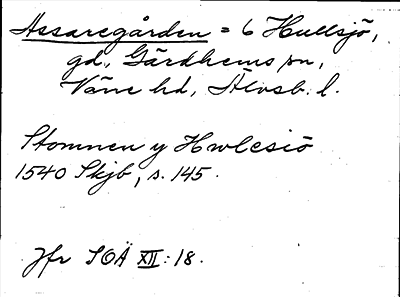 Assaregården = 6 Hullsjö,
gd., Gärdhems sn,
Väne hd, Älvsb. l.
Stomnen y Hwlesiö
1540 Skjb, s. 145.
Jfr SOÄ XII: 18.